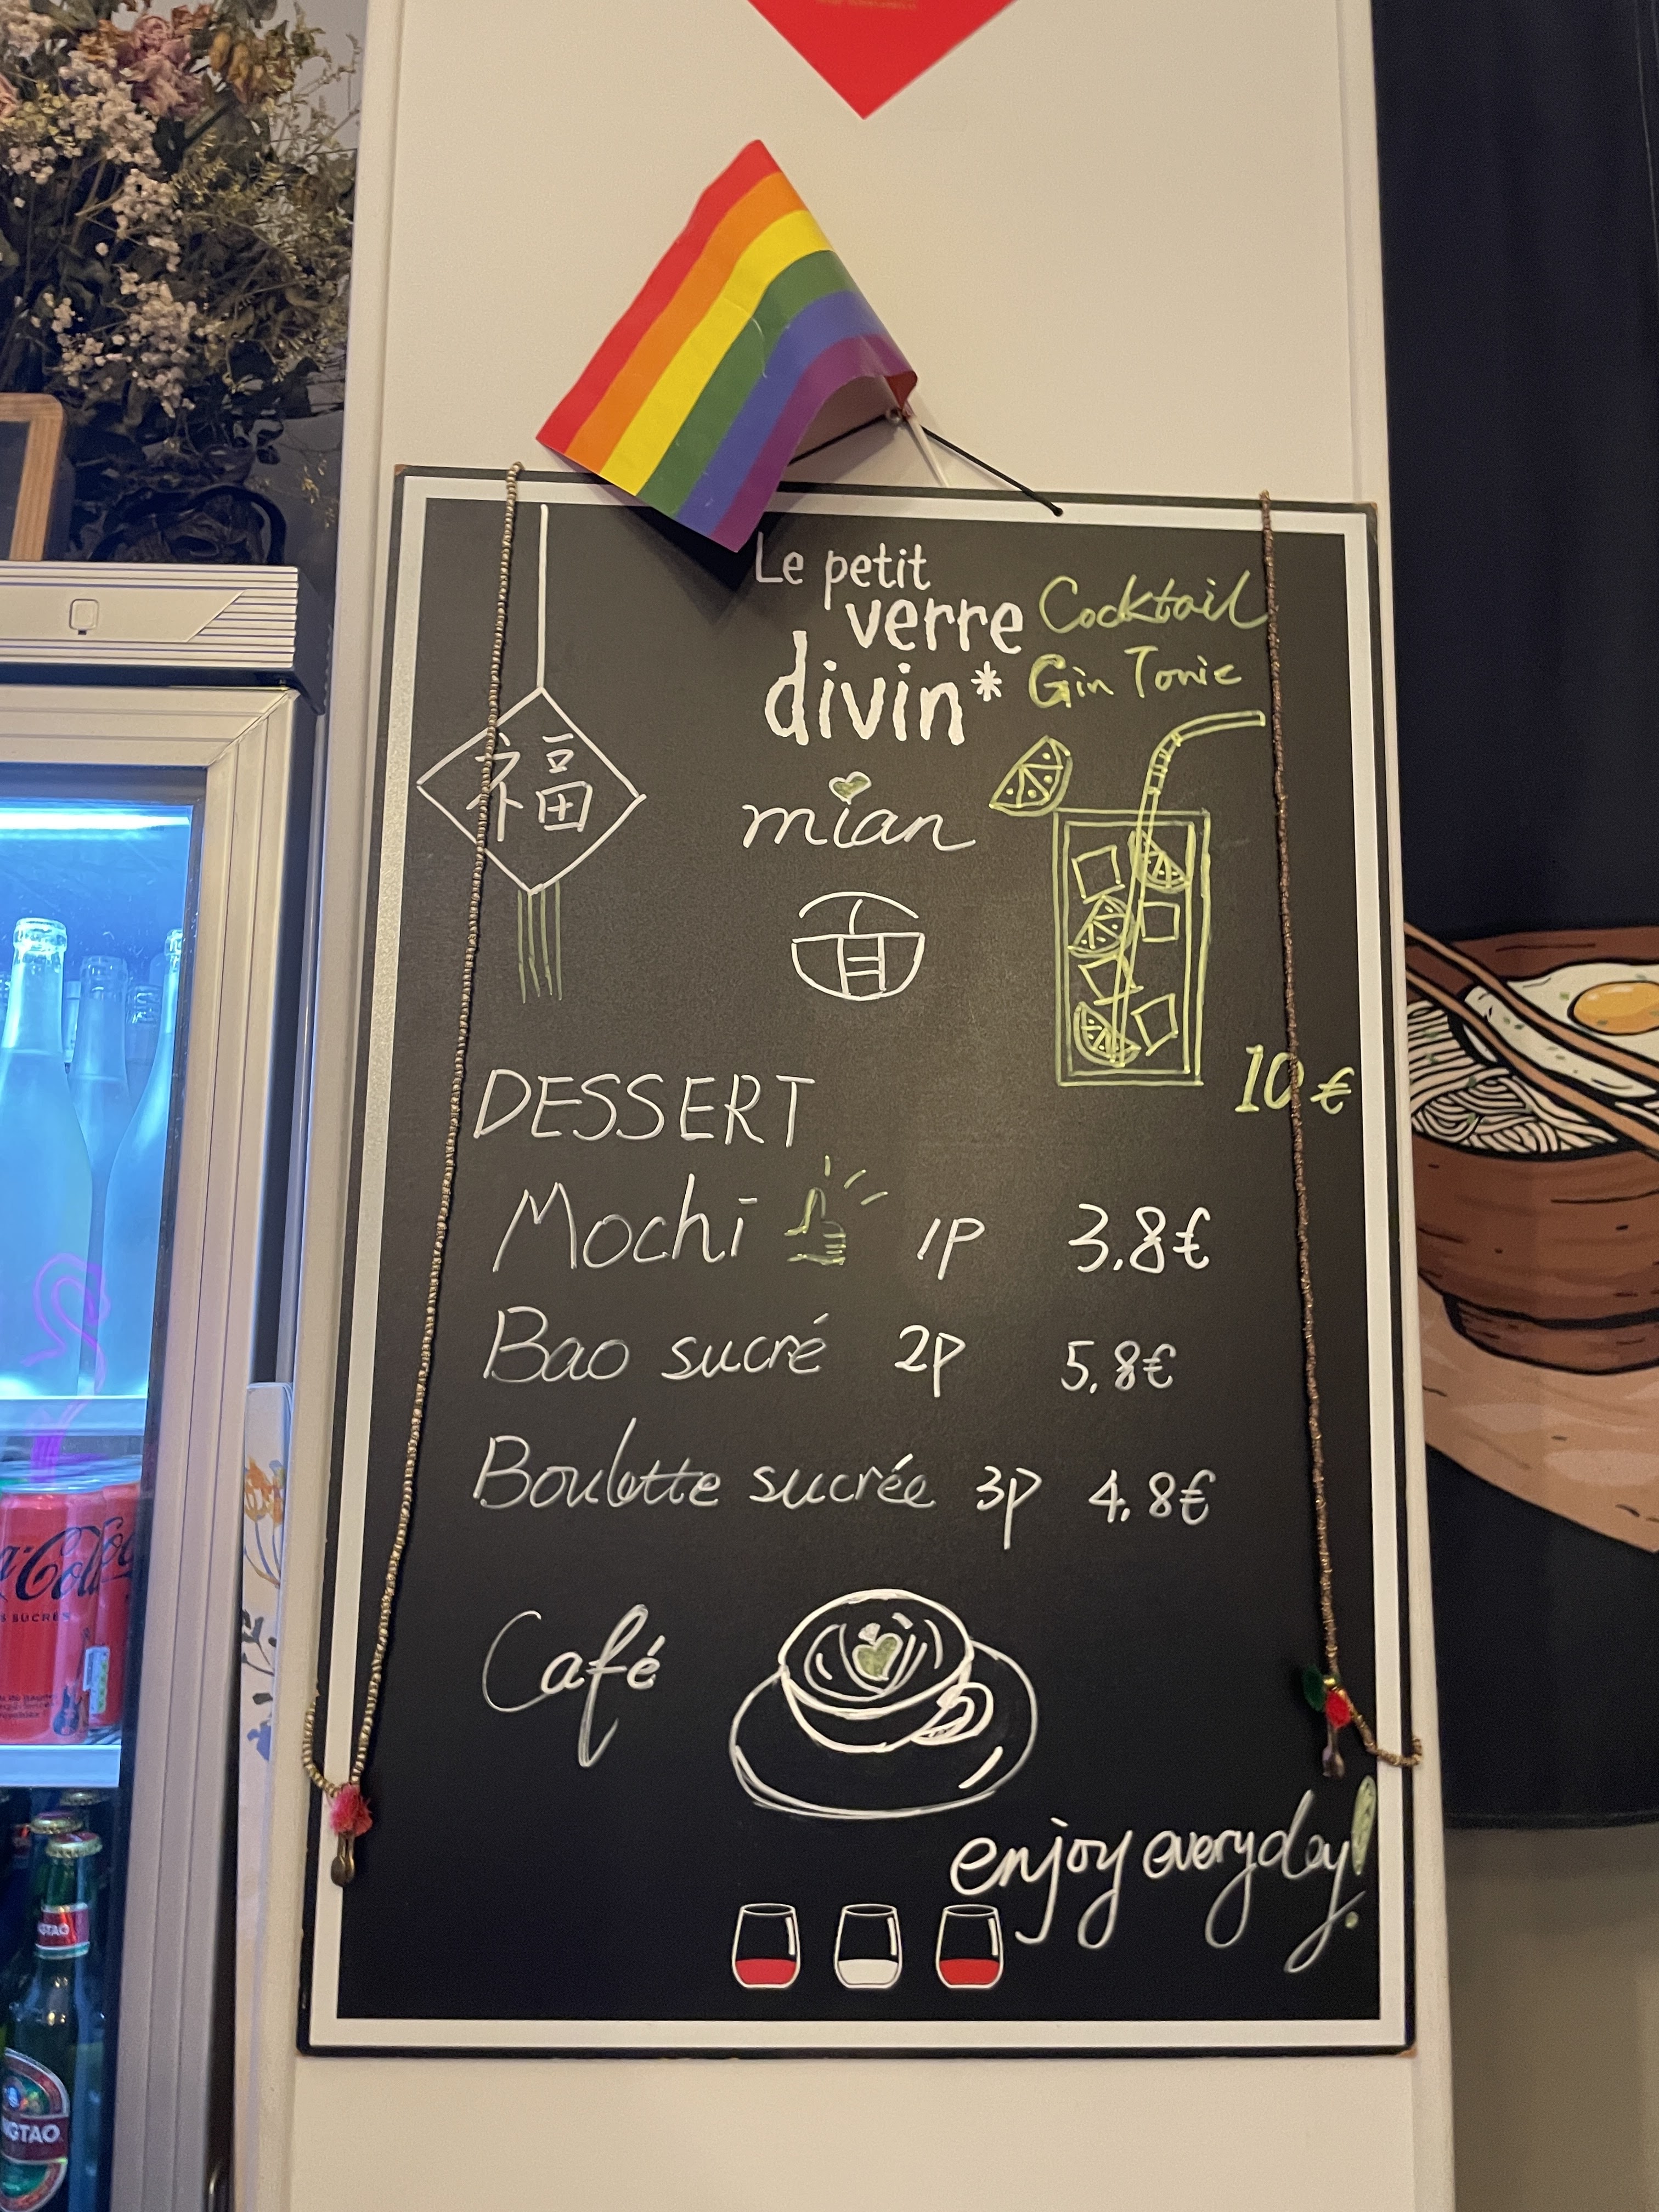 Le petit
verre
divin*
Cocktail
Gin Tonic
福
mian
10€
DESSERT
Mochi 1P 3.8€
Bao sucré 2P 5.8€
Boulette sucrée 3P 4.8€
Café
enjoy everyday!
SUCRES
TSINGTAO